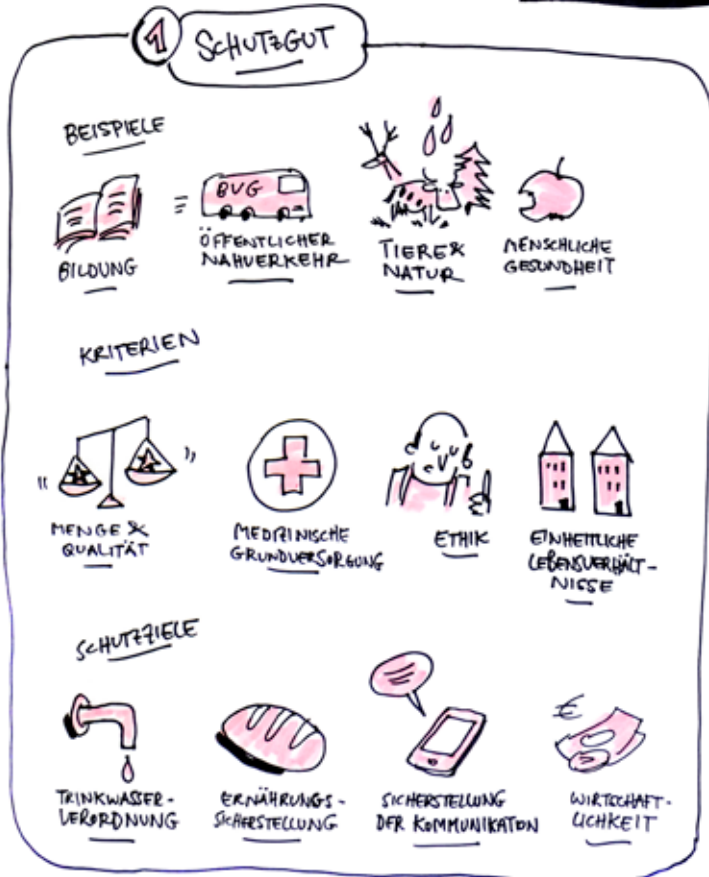 1 SCHUTZGUT
BEISPIELE
BILDUNG
BVG
ÖFFENTLICHER
NAHVERKEHR
TIERE &
NATUR
MENSCHLICHE
GESUNDHEIT
KRITERIEN
MENGE &
QUALITÄT
MEDIZINISCHE
GRUNDVERSORGUNG
ETHIK
EINHEITLICHE
LEBENSVERHÄLT-
NISSE
SCHUTZZIELE
TRINKWASSER-
VERORDNUNG
ERNÄHRUNGS-
SICHERSTELLUNG
SICHERSTELLUNG
DER KOMMUNIKATON
€
WIRTSCHAFT-
LICHKEIT